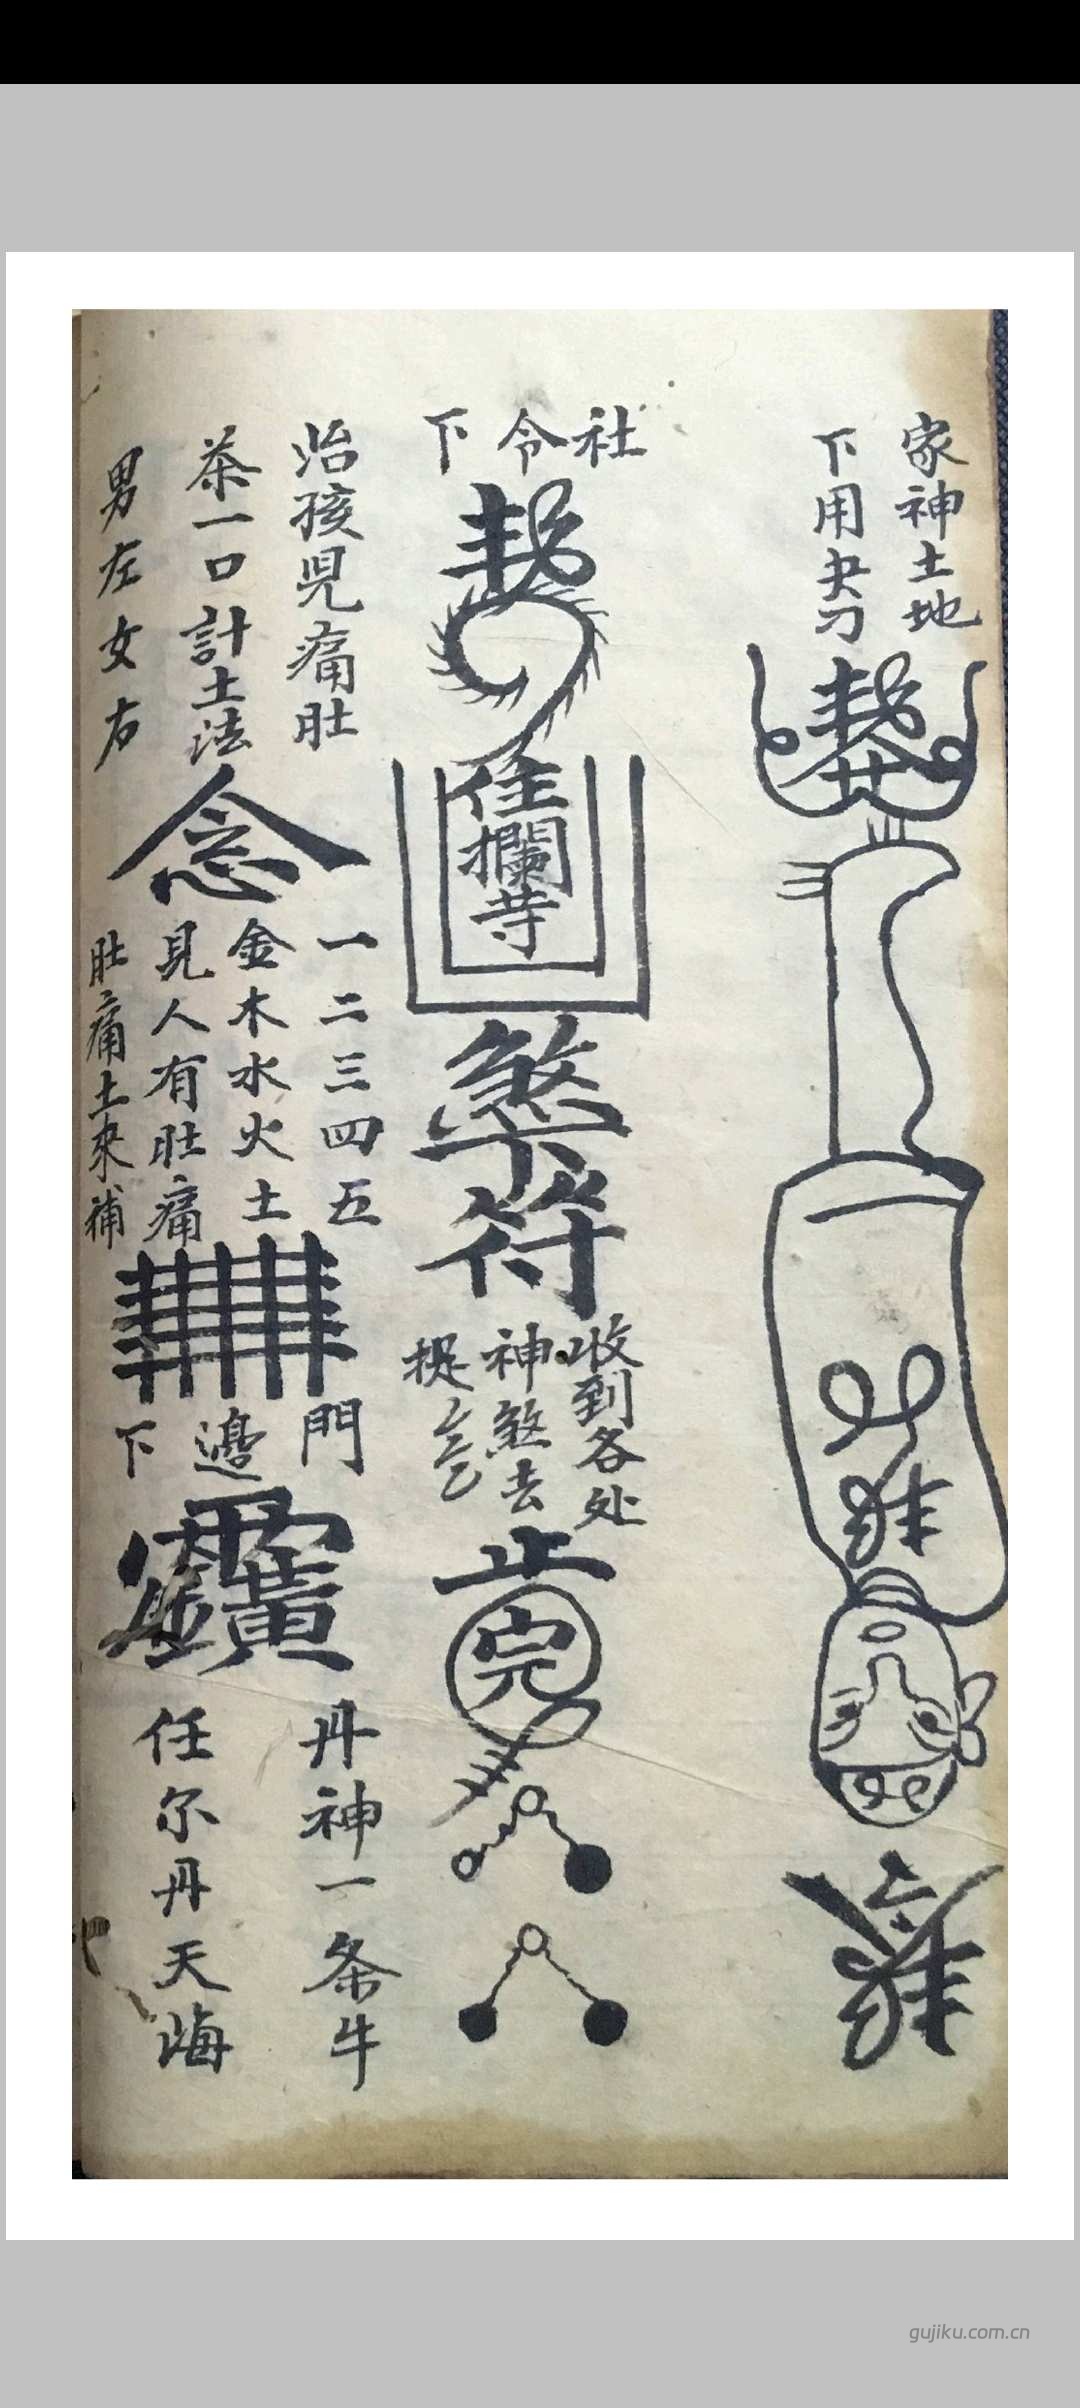 家神土地
下用
社令下
欄
煞
符
收到各处
神煞去
捉
止
完
治孩児痛肚
茶一口計土法
男左女右
念
一二三四五
金木水火土
見人有肚痛
肚痛土來補
門
邊
下
丹神一条牛
任尔丹天海
gujiku.com.cn